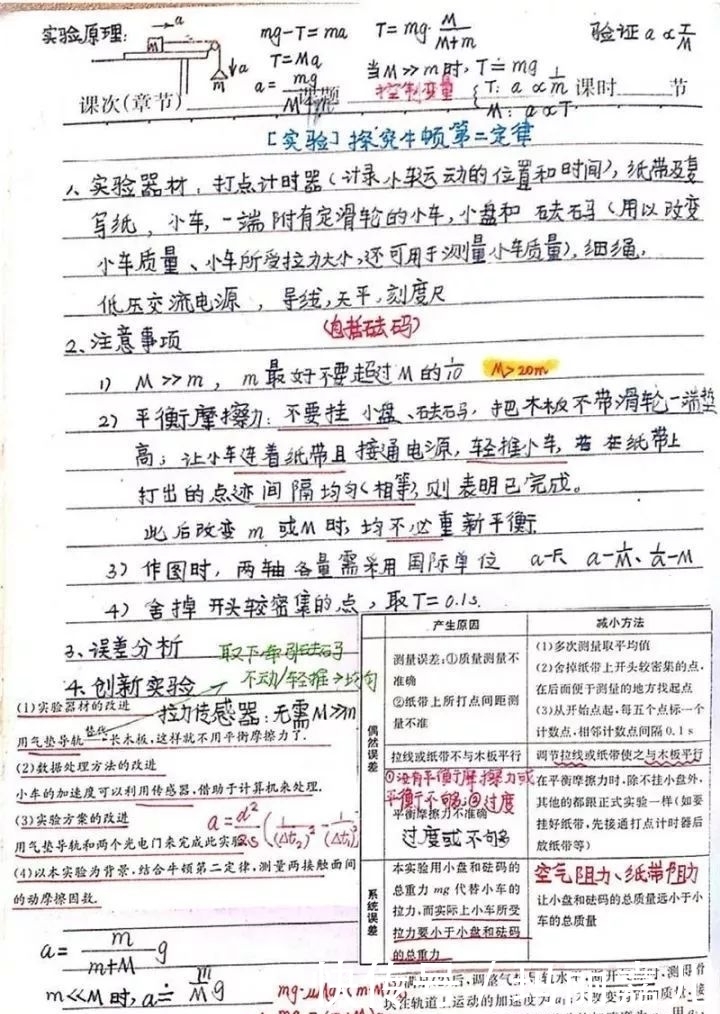 实验原理:
a
M
m
a
mg-T=ma
T=Ma
a=mg/M
T=mg·M/(M+m)
当M≫m时, T≐mg
验证a∝T/M
控制变量
T: a∝1/m
M: a∝T
课次(章节)
课题
课时
节
[实验]探究牛顿第二定律
1、实验器材:打点计时器(计录小车运动的位置和时间),纸带及复
写纸,小车,一端附有定滑轮的小车,小盘和砝码(用以改变
小车质量、小车所受拉力大小,还可用于测量小车质量),细绳,
低压交流电源,导线,天平,刻度尺
(包括砝码)
2、注意事项
1) M≫m, m最好不要超过M的1/10 M>20m
2) 平衡摩擦力:不要挂小盘、砝码,把木板不带滑轮一端垫
高;让小车连着纸带且接通电源,轻推小车,若在纸带上
打出的点迹间隔均匀(相等),则表明已完成。
此后改变m或M时,均不必重新平衡
3) 作图时,两轴各量需采用国际单位 a-F、a-1/M、1/a-M
4) 舍掉开头较密集的点,取T=0.1s.
3、误差分析
取下牵引砝码
不动/轻推→均匀
4、创新实验
(1)实验器材的改进
拉力传感器:无需M≫m
用气垫导轨 替代 长木板,这样就不用平衡摩擦力了.
(2)数据处理方法的改进
小车的加速度可以利用传感器,借助于计算机来处理.
(3)实验方案的改进
a=d²/2s(1/(Δt₂)²-1/(Δt₁)²)
用气垫导轨和两个光电门来完成此实验
(4)以本实验为背景,结合牛顿第二定律,测量两接触面间
的动摩擦因数.
a=m/(m+M)g
m≪M时,a≐m/M g
产生原因
减小方法
偶然误差
测量误差:①质量测量不
准确
②纸带上所打点间距测
量不准
(1)多次测量取平均值
(2)舍掉纸带上开头较密集的点,
在后面便于测量的地方找起点
(3)从开始点起,每五个点标一个
计数点,相邻计数点间隔0.1 s
拉线或纸带不与木板平行
调节拉线或纸带使之与木板平行
①没有平衡摩擦力或
平衡不够;②过度
平衡摩擦力不准确
过度或不够多
在平衡摩擦力时,除不挂小盘外,
其他的都跟正式实验一样(如要
挂好纸带,先接通打点计时器后
放纸带等)
系统误差
本实验用小盘和砝码的
总重力mg代替小车的
拉力,而实际上小车所受
拉力要小于小盘和砝码
的总重力
空气阻力、纸带阻力
让小盘和砝码的总质量远小于小
车的总质量